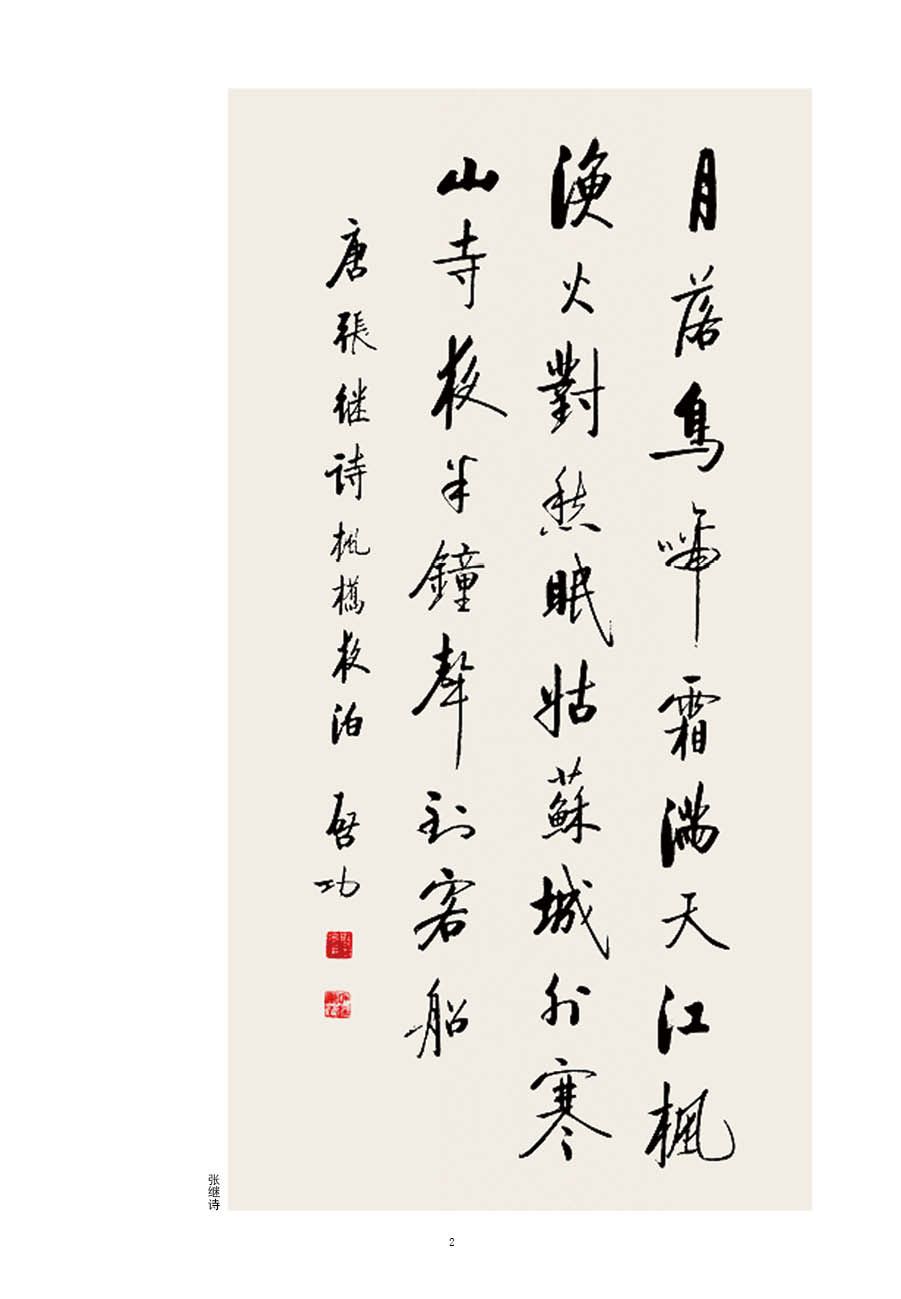 月落烏啼霜满天江楓
漁火對愁眠姑蘇城外寒
山寺夜半鐘聲到客船
唐張继诗楓橋夜泊 启功
张继诗
2